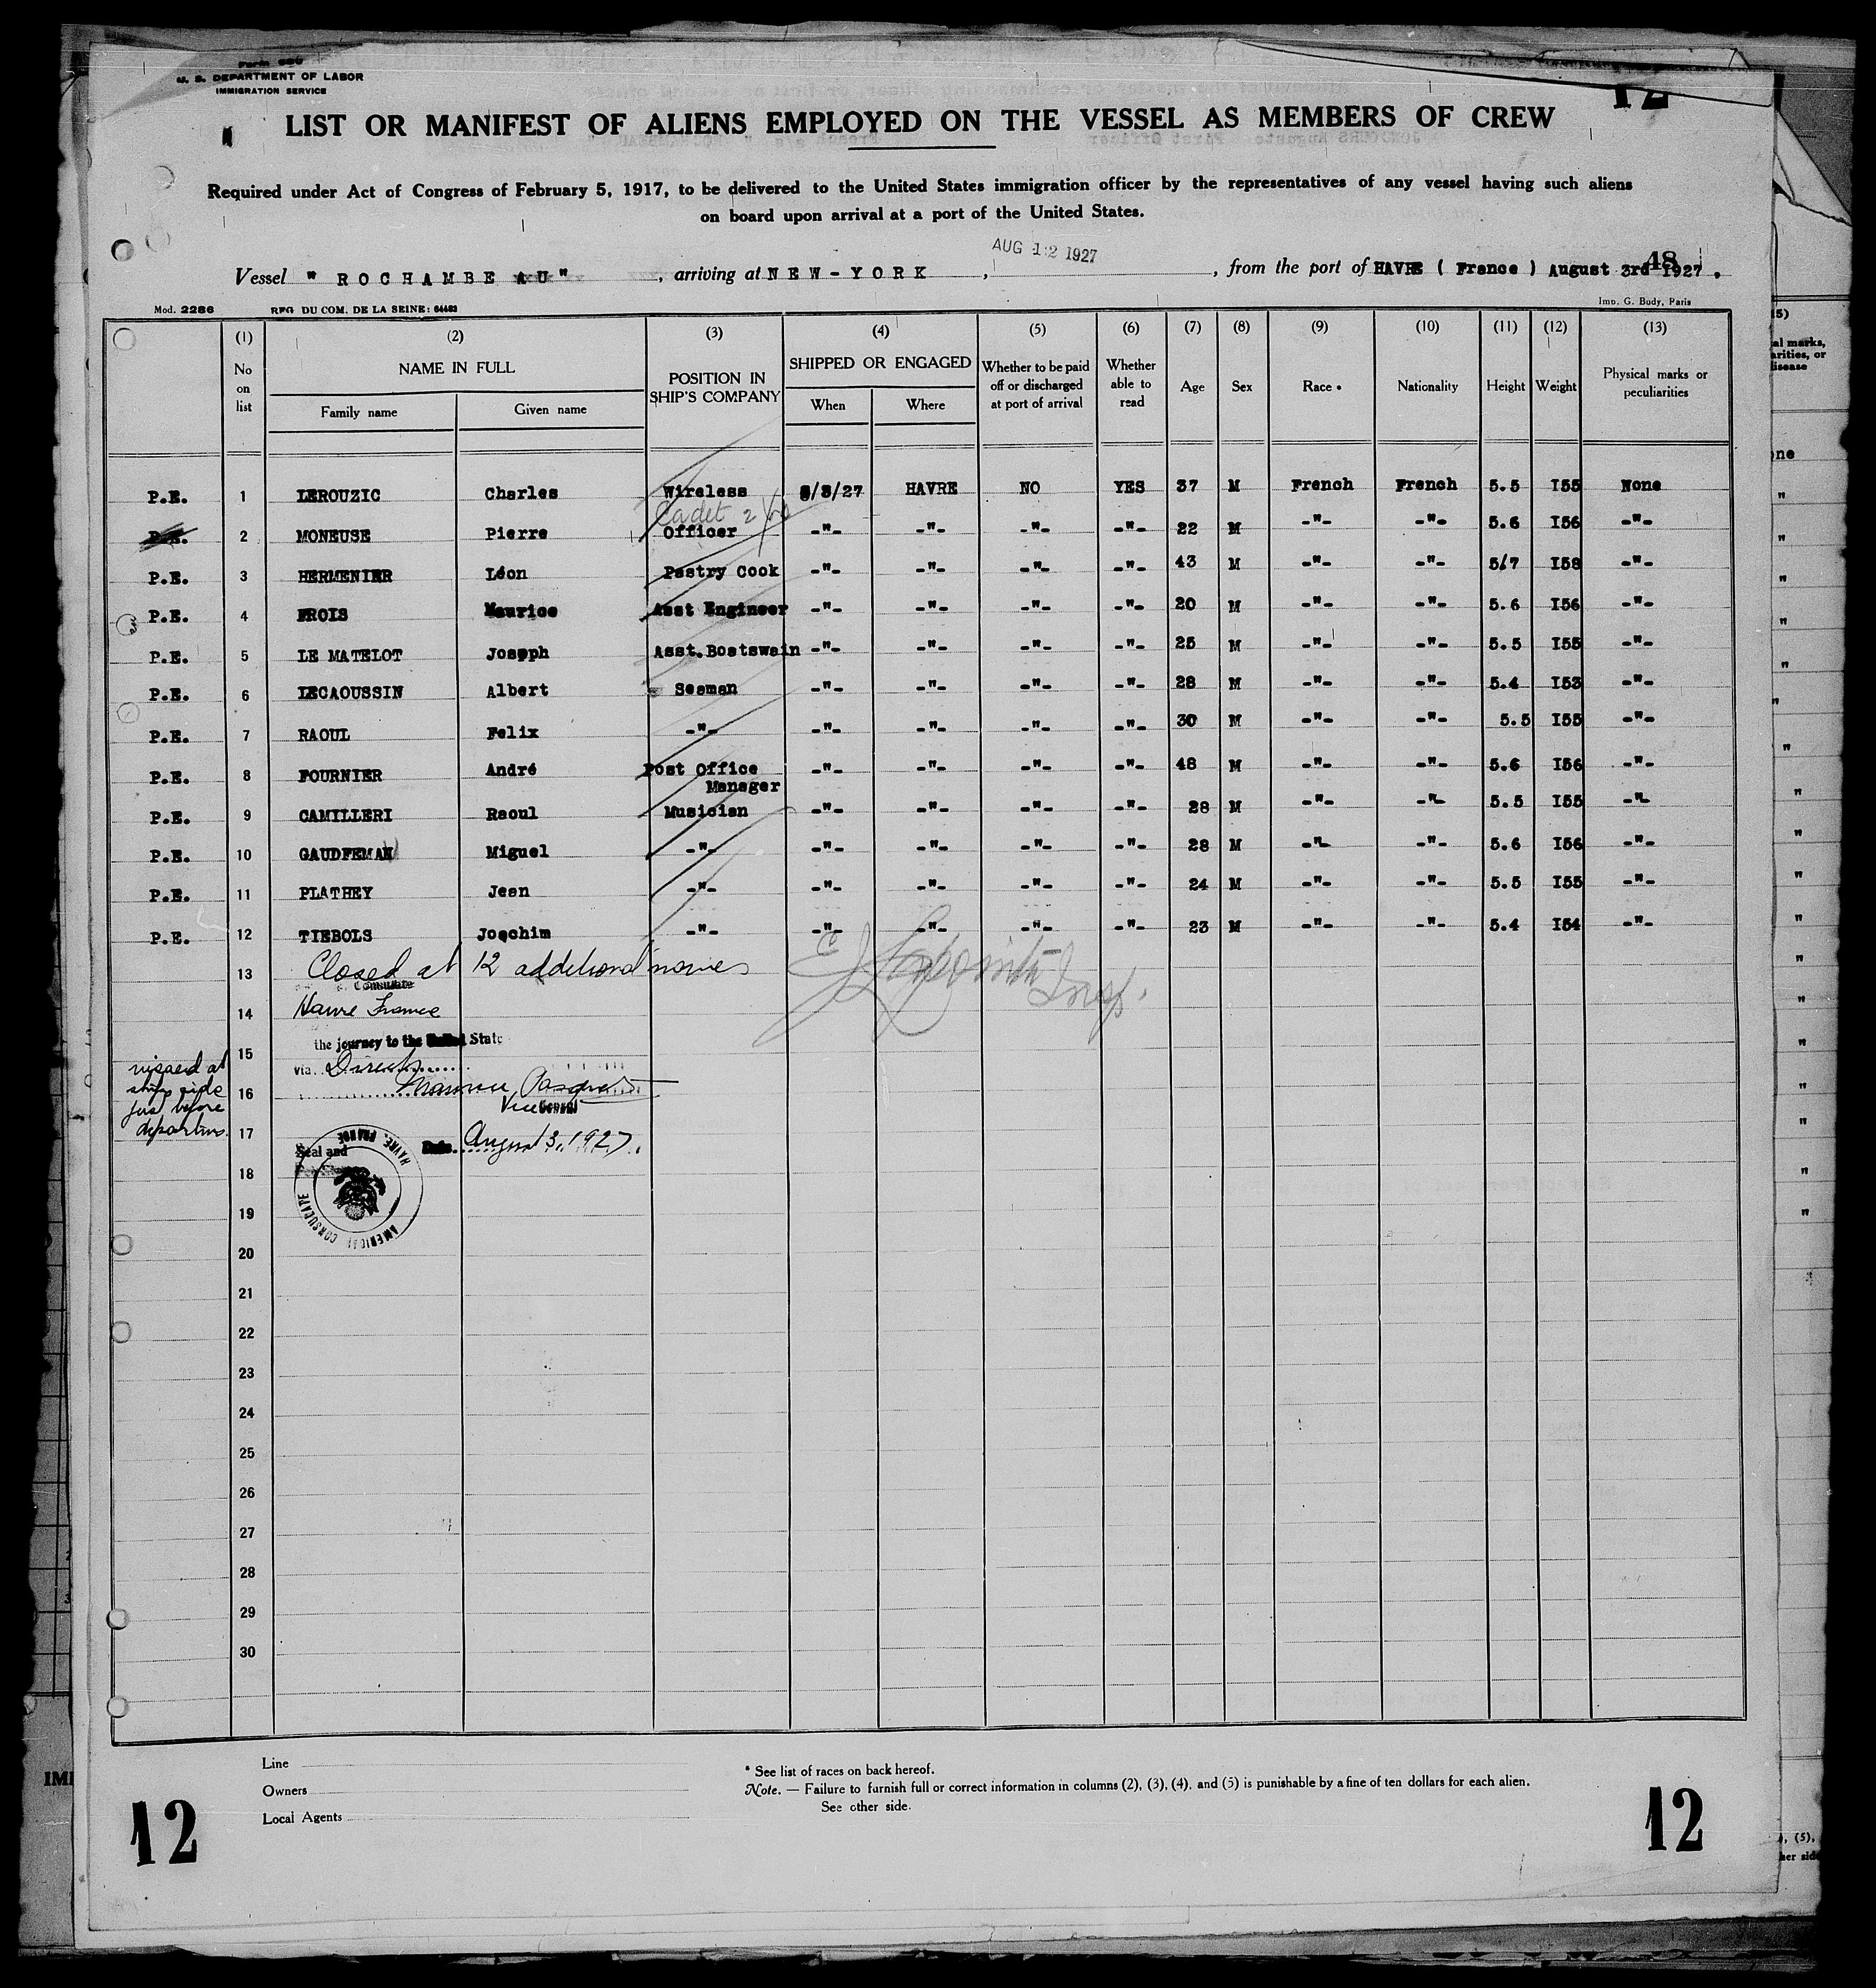 U. S. DEPARTMENT OF LABOR
IMMIGRATION SERVICE
LIST OR MANIFEST OF ALIENS EMPLOYED ON THE VESSEL AS MEMBERS OF CREW
Required under Act of Congress of February 5, 1917, to be delivered to the United States immigration officer by the representatives of any vessel having such aliens
on board upon arrival at a port of the United States.
AUG 12 1927
48
Vessel " ROCHAMBEAU" , arriving at NEW-YORK , , from the port of HAVRE ( France ) August 3rd 1927 .
Mod. 2286 REG DU COM. DE LA SEINE: Imp. G. Budy, Paris
(1) (2) (3) (4) (5) (6) (7) (8) (9) (10) (11) (12) (13)
No on list NAME IN FULL Family name Given name POSITION IN SHIP'S COMPANY SHIPPED OR ENGAGED When Where Whether to be paid off or discharged at port of arrival Whether able to read Age Sex Race * Nationality Height Weight Physical marks or peculiarities
P.E. 1 LEROUZIC Charles Wireless 8/3/27 HAVRE NO YES 37 M French French 5.5 I55 None
Cadet
P.E. 2 MONEUSE Pierre Officer -"- -"- -"- -"- 22 M -"- -"- 5.6 I56 -"-
P.E. 3 HERMENIER Léon Pastry Cook -"- -"- -"- -"- 43 M -"- -"- 5/7 I58 -"-
P.E. 4 FROIS Maurice Asst Engineer -"- -"- -"- -"- 20 M -"- -"- 5.6 I56 -"-
P.E. 5 LE MATELOT Joseph Asst.Boatswain -"- -"- -"- -"- 25 M -"- -"- 5.5 I55 -"-
P.E. 6 LECAOUSSIN Albert Seaman -"- -"- -"- -"- 28 M -"- -"- 5.4 I53 -"-
P.E. 7 RAOUL Felix -"- -"- -"- -"- -"- 30 M -"- -"- 5.5 I55 -"-
P.E. 8 FOURNIER André Post Office Manager -"- -"- -"- -"- 48 M -"- -"- 5.6 I56 -"-
P.E. 9 CAMILLERI Raoul Musician -"- -"- -"- -"- 28 M -"- -"- 5.5 I55 -"-
P.E. 10 GAUDFEMAN Miguel -"- -"- -"- -"- -"- 28 M -"- -"- 5.6 I56 -"-
P.E. 11 PLATHEY Jean -"- -"- -"- -"- -"- 24 M -"- -"- 5.5 I55 -"-
P.E. 12 TIEBOLS Joachim -"- -"- -"- -"- -"- 23 M -"- -"- 5.4 I54 -"-
13 Closed at 12 additional names
Consulate
14 Havre France
the journey to the United State
15 via. Direct
visaed at ship side just before departure
16
Vice Consul
17 Seal and Date. August 3, 1927.
AMERICAN CONSULATE HAVRE, FRANCE
18
19
20
21
22
23
24
25
26
27
28
29
30
Line
Owners
Local Agents
* See list of races on back hereof.
Note. — Failure to furnish full or correct information in columns (2), (3), (4), and (5) is punishable by a fine of ten dollars for each alien.
See other side.
12 12